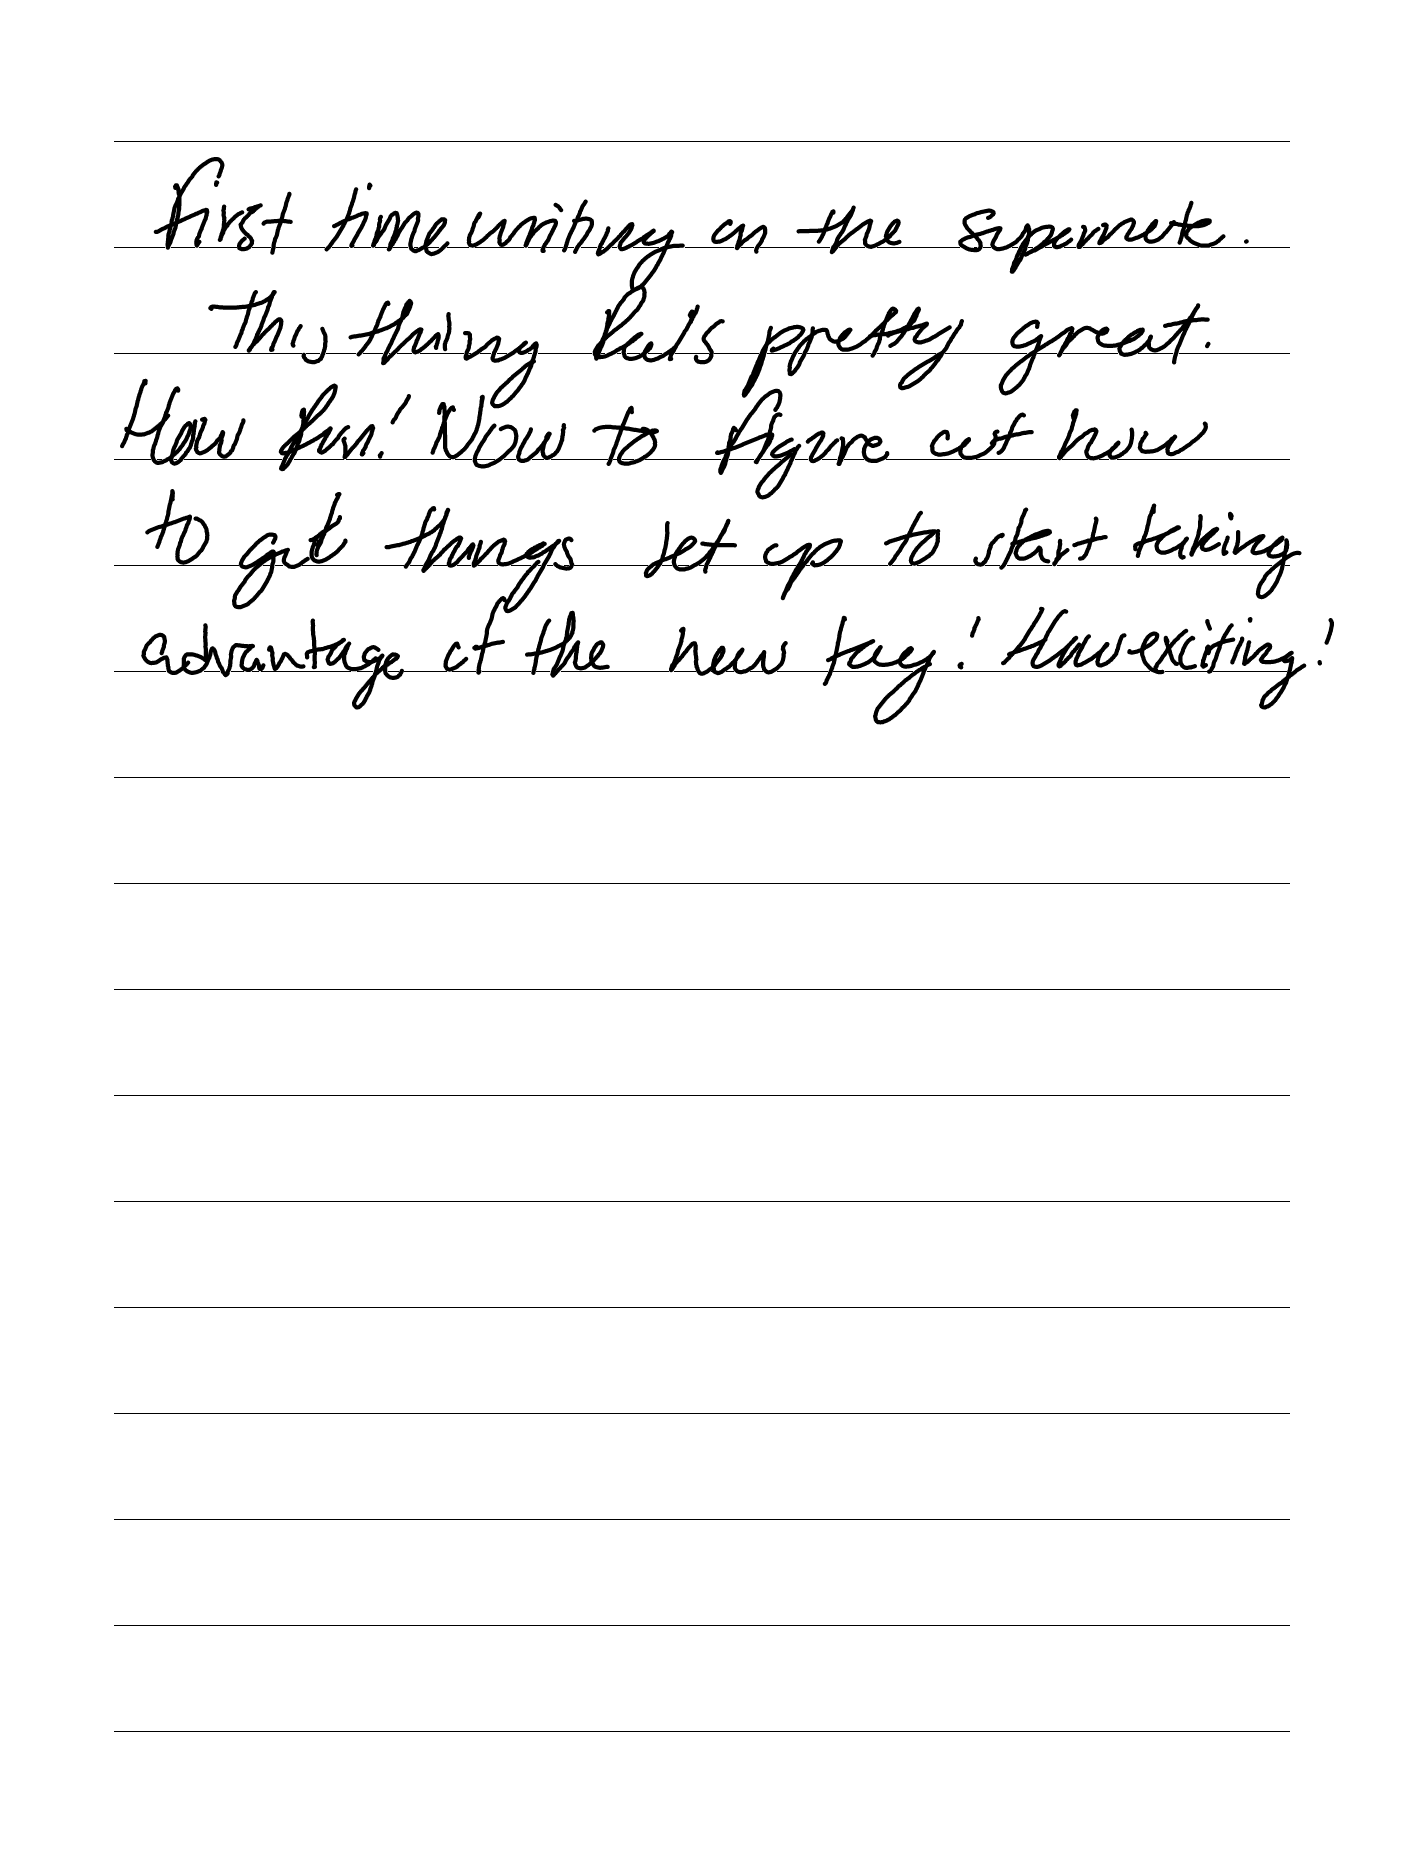 First time writing on the supernote.
This thing feels pretty great.
How fun! Now to figure out how
to get things set up to start taking
advantage of the new toy! How exciting!